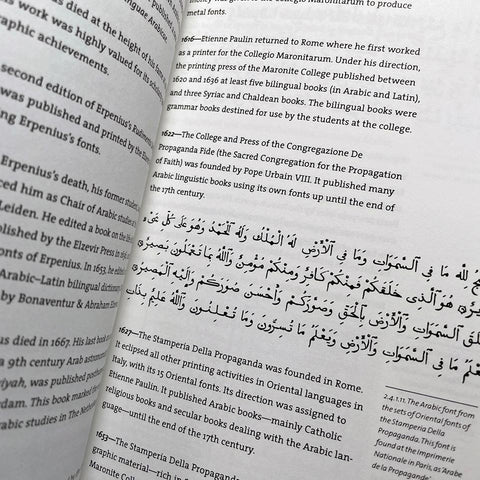 Published
nguae Arabicae
died at the height of his fame
s work was highly valued for its
graphic achievements.
second edition of Erpenius's
was published and printed by the
ng Erpenius's fonts.
Erpenius's death, his former student,
ced him as Chair of Arabic studies
Leiden. He edited a book on the
published by the Elzevir Press in
fonts of Erpenius. In 1653, he edited
Arabic–Latin bilingual dictionary
by Bonaventur & Abraham
us died in 1667. His last book
a 9th century Arab
riyah, was published
dam. This book marked the
rabic studies in The
money was given to the Collegio Maronitarum to produce
metal fonts.
1616—Etienne Paulin returned to Rome where he first worked
as a printer for the Collegio Maronitarum. Under his direction,
the printing press of the Maronite College published between
1620 and 1636 at least five bilingual books (in Arabic and Latin),
and three Syriac and Chaldean books. The bilingual books were
grammar books destined for use by the students at the college.
1622—The College and Press of the Congregazione De
Propaganda Fide (the Sacred Congregation for the Propagation
of Faith) was founded by Pope Urbain VIII. It published many
Arabic linguistic books using its own fonts up until the end of
the 17th century.
لله ما في السموات وما في الأرض له الملك وله الحمد وهو على كل شيء
هو الذي خلقكم فمنكم كافر ومنكم مؤمن والله بما تعملون بصير
خلق السموات والأرض بالحق وصوركم وأحسن صوركم وإليه المصير
يعلم ما في السموات والأرض ويعلم ما تسرون وما تعلنون والله عليم بذات
1627—The Stamperia Della Propaganda was founded in Rome.
It eclipsed all other printing activities in Oriental languages in
Italy, with its 15 Oriental fonts. Its direction was assigned to
Etienne Paulin. It published Arabic books—mainly Catholic
religious books and secular books dealing with the Arabic lan-
guage—until the end of the 17th century.
1653—The Stamperia Della Propaganda
graphic material—rich in
Maronite College
2.4.1.11. The Arabic font from
the sets of Oriental fonts of
the Stamperia Della
Propaganda. This font is
found at the Imprimerie
Nationale in Paris, as 'Arabe
de la Propagande'.